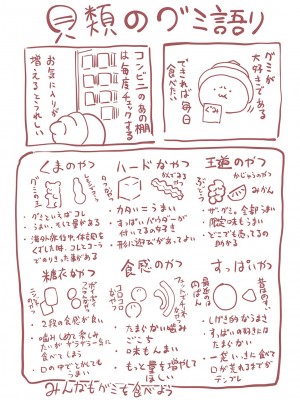 貝類のグミ語り
グミが
大好きである
できれば毎日
食べたい
ぐみ
コンビニのあの棚
は毎度チェックする
お気に入りが
増えるとうれしい
王道のやつ
ぶどう
かじゅうのやつ
みかん
・ザ・グミ。全部うまい
・限定味もうまい
・どこでも売ってるの
助かる
ハードなやつ
・カタいニうまい
・すっぱいパウダーが
付いてるの好き
・形に遊びがあってよい
くまのやつ
グミの王
・グミといえばコレ
・うまい。そして量がある
・海外旅行中、体調を
くずした時、コレとコーラ
でのりきった事がある
すっぱいやつ
・しげき的なうまさ
・すっぱい好きには
たまらない
・一気にいきと食べて
口が荒れるまでが
テンプレ
食感のやつ
コロコロ
・たまらない噛み
ごこち
・味もんまい
・もっと量を増やして
ほしい
糖衣なやつ
・2段の食感が良い
・噛みしめて楽しみ
たいがガラガラーっと
食べてしまう
・口の中でとかしても
うまい
みんなもグミを食べよう